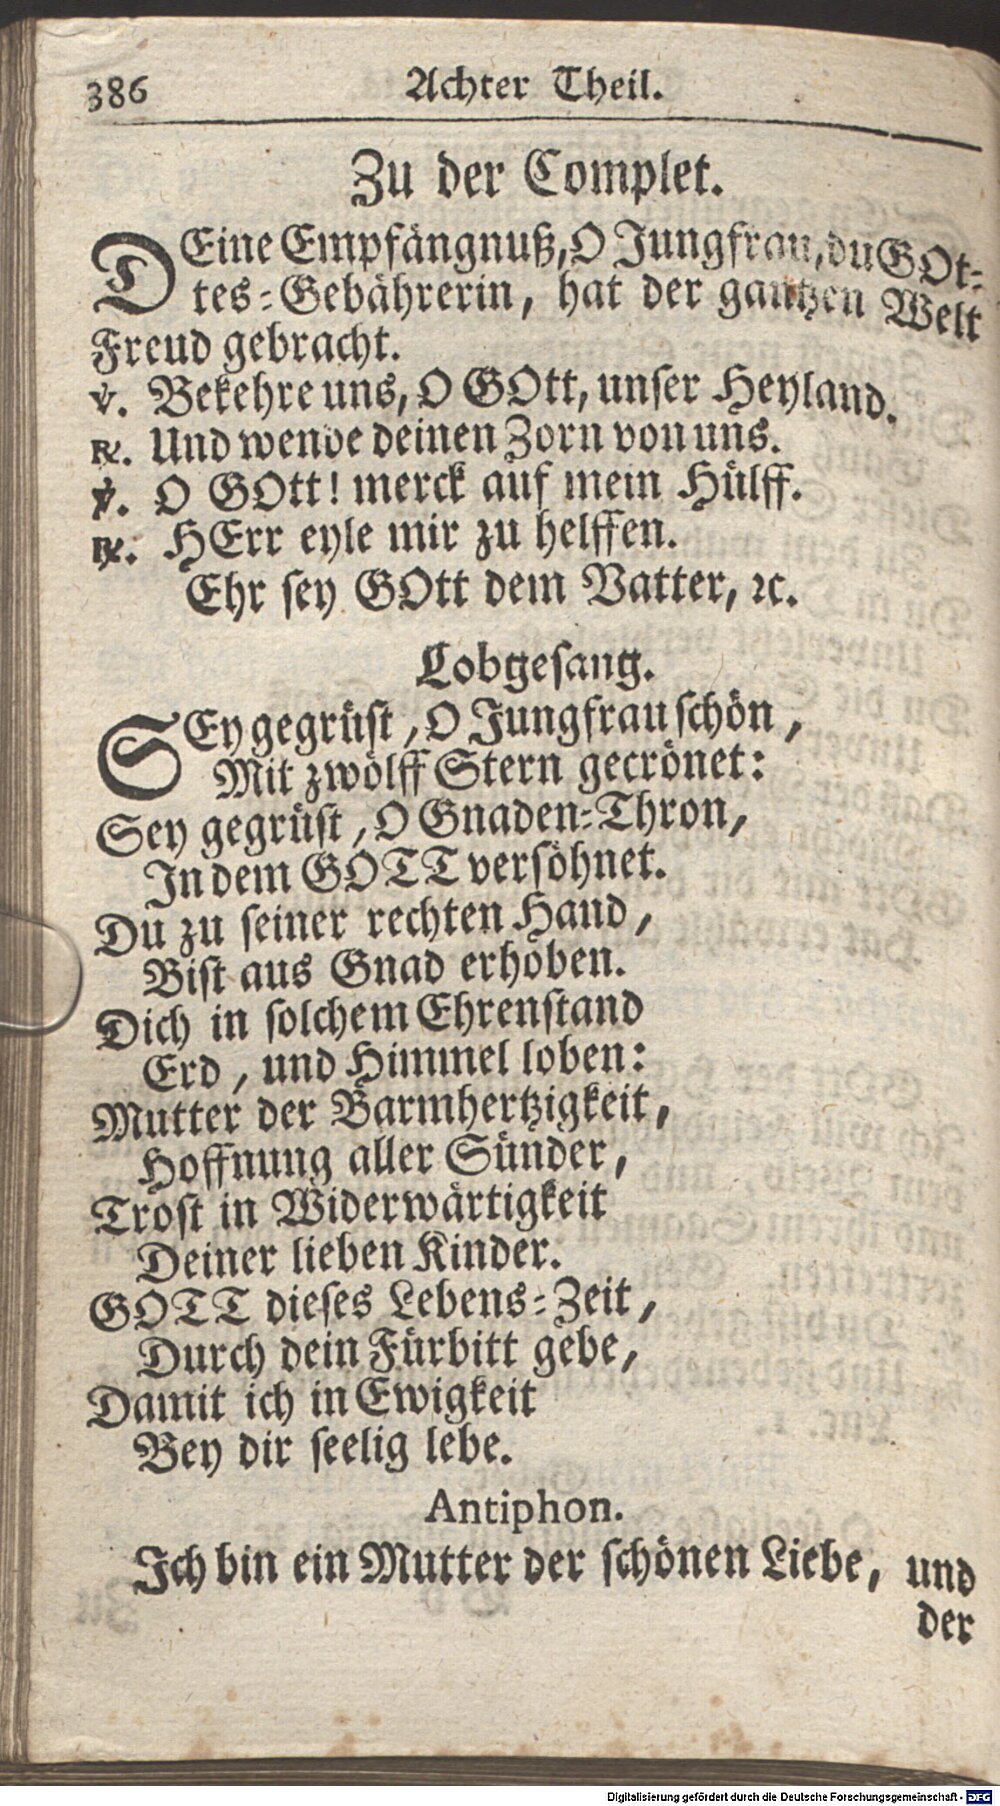 386 Achter Theil.
Zu der Complet.
DEine Empfängnuß, O Jungfrau, du GOt-
tes-Gebährerin, hat der gantzen Welt
Freud gebracht.
℣. Bekehre uns, O GOtt, unser Heyland.
℟. Und wende deinen Zorn von uns.
℣. O GOtt! merck auf mein Hülff.
℟. HErr eyle mir zu helffen.
Ehr sey GOtt dem Vatter, ꝛc.
Lobgesang.
SEy gegrüst, O Jungfrau schön,
Mit zwölff Stern gecrönet:
Sey gegrüst, O Gnaden-Thron,
In dem GOTT versöhnet.
Du zu seiner rechten Hand,
Bist aus Gnad erhoben.
Dich in solchem Ehrenstand
Erd, und Himmel loben:
Mutter der Barmhertzigkeit,
Hoffnung aller Sünder,
Trost in Widerwärtigkeit
Deiner lieben Kinder.
GOTT dieses Lebens-Zeit,
Durch dein Fürbitt gebe,
Damit ich in Ewigkeit
Bey dir seelig lebe.
Antiphon.
Ich bin ein Mutter der schönen Liebe, und
der
Digitalisierung gefördert durch die Deutsche Forschungsgemeinschaft - DFG